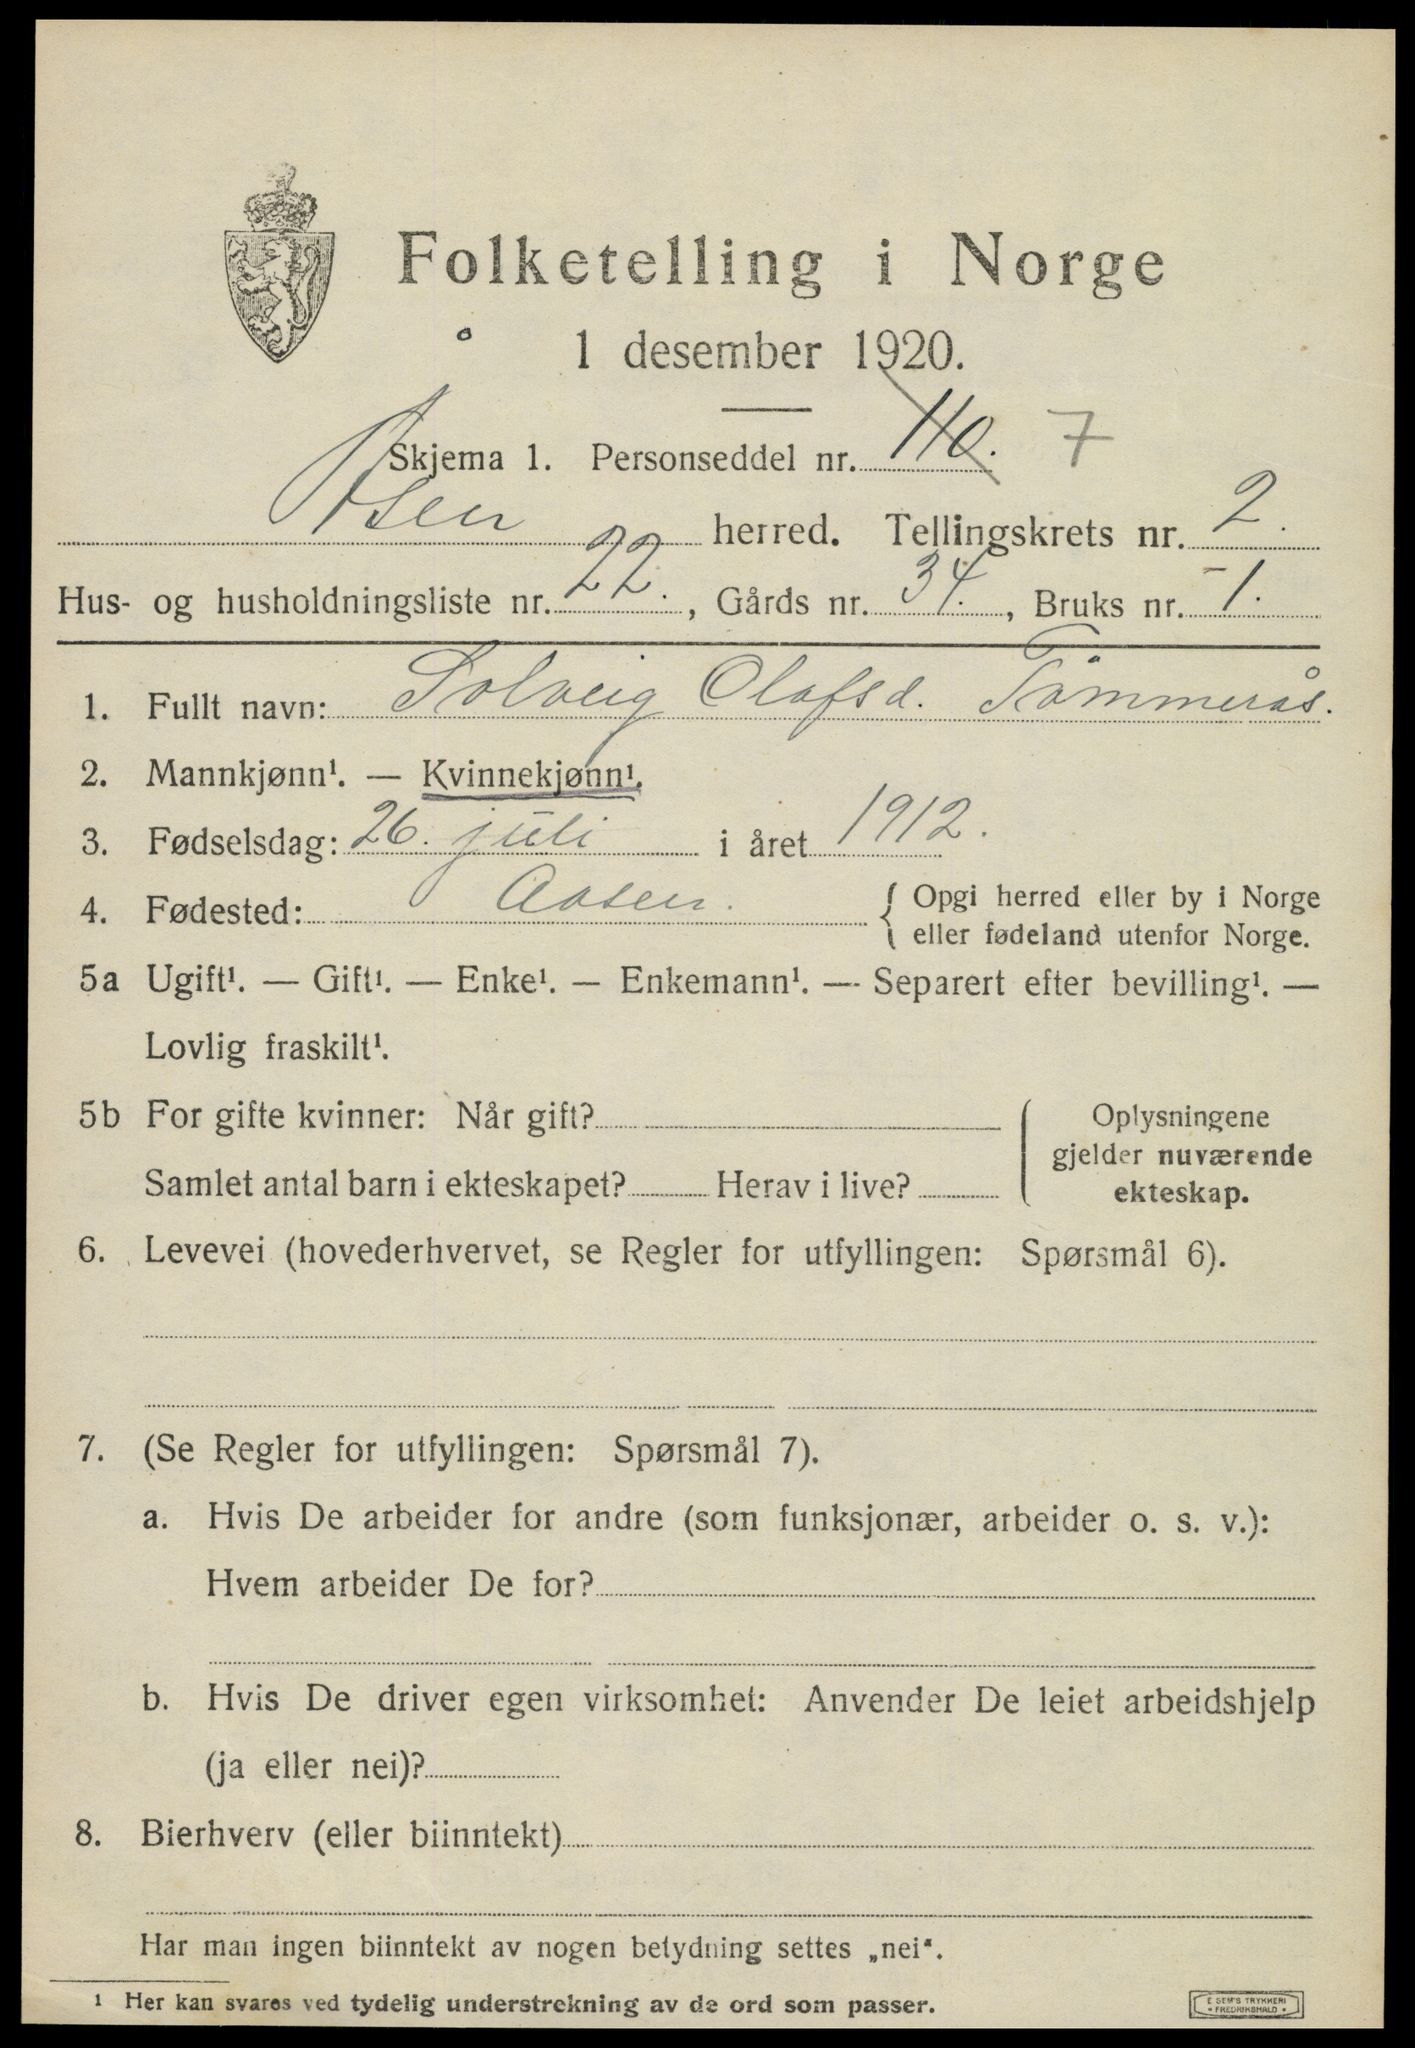 Folketelling i Norge
1 desember 1920.
Skjema 1. Personseddel nr. 110. 7
Åsen herred. Tellingskrets nr. 2.
Hus- og husholdningsliste nr. 22., Gårds nr. 34., Bruks nr. 1.
1. Fullt navn: Solveig Olafsd. Tömmerås.
2. Mannkjønn¹. — Kvinnekjønn¹.
3. Fødselsdag: 26. juli i året 1912.
4. Fødested: Aasen. { Opgi herred eller by i Norge
eller fødeland utenfor Norge.
5a Ugift¹. — Gift¹. — Enke¹. — Enkemann¹. — Separert efter bevilling¹. —
Lovlig fraskilt¹.
5b For gifte kvinner: Når gift?
Samlet antal barn i ekteskapet? Herav i live?
Oplysningene
gjelder nuværende
ekteskap.
6. Levevei (hovederhvervet, se Regler for utfyllingen: Spørsmål 6).
7. (Se Regler for utfyllingen: Spørsmål 7).
a. Hvis De arbeider for andre (som funksjonær, arbeider o. s. v.):
Hvem arbeider De for?
b. Hvis De driver egen virksomhet: Anvender De leiet arbeidshjelp
(ja eller nei)?
8. Bierhverv (eller biinntekt)
Har man ingen biinntekt av nogen betydning settes „nei“.
¹ Her kan svares ved tydelig understrekning av de ord som passer.
E SEM'S TRYKKERI
• FREDRIKSHALD •